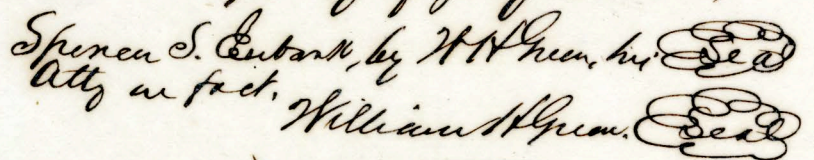 Spencer S. Eubank, by W H Green, his Seal
Atty in fact.
William H Green. Seal